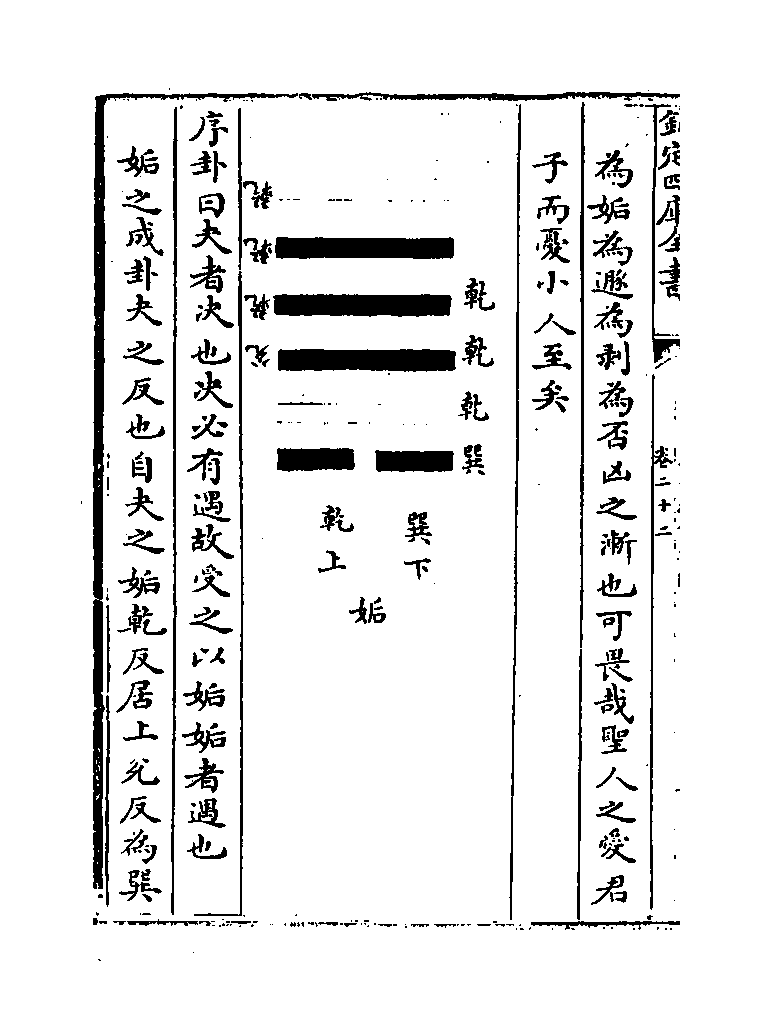 欽定四庫全書
卷二十二
為姤為遯為剥為否凶之漸也可畏哉聖人之愛君
子而憂小人至矣
乾
乾
乾
巽
巽下
乾上
姤
乾
乾
乾
兊
序卦曰夬者決也決必有遇故受之以姤姤者遇也
姤之成卦夬之反也自夬之姤乾反居上兊反為巽